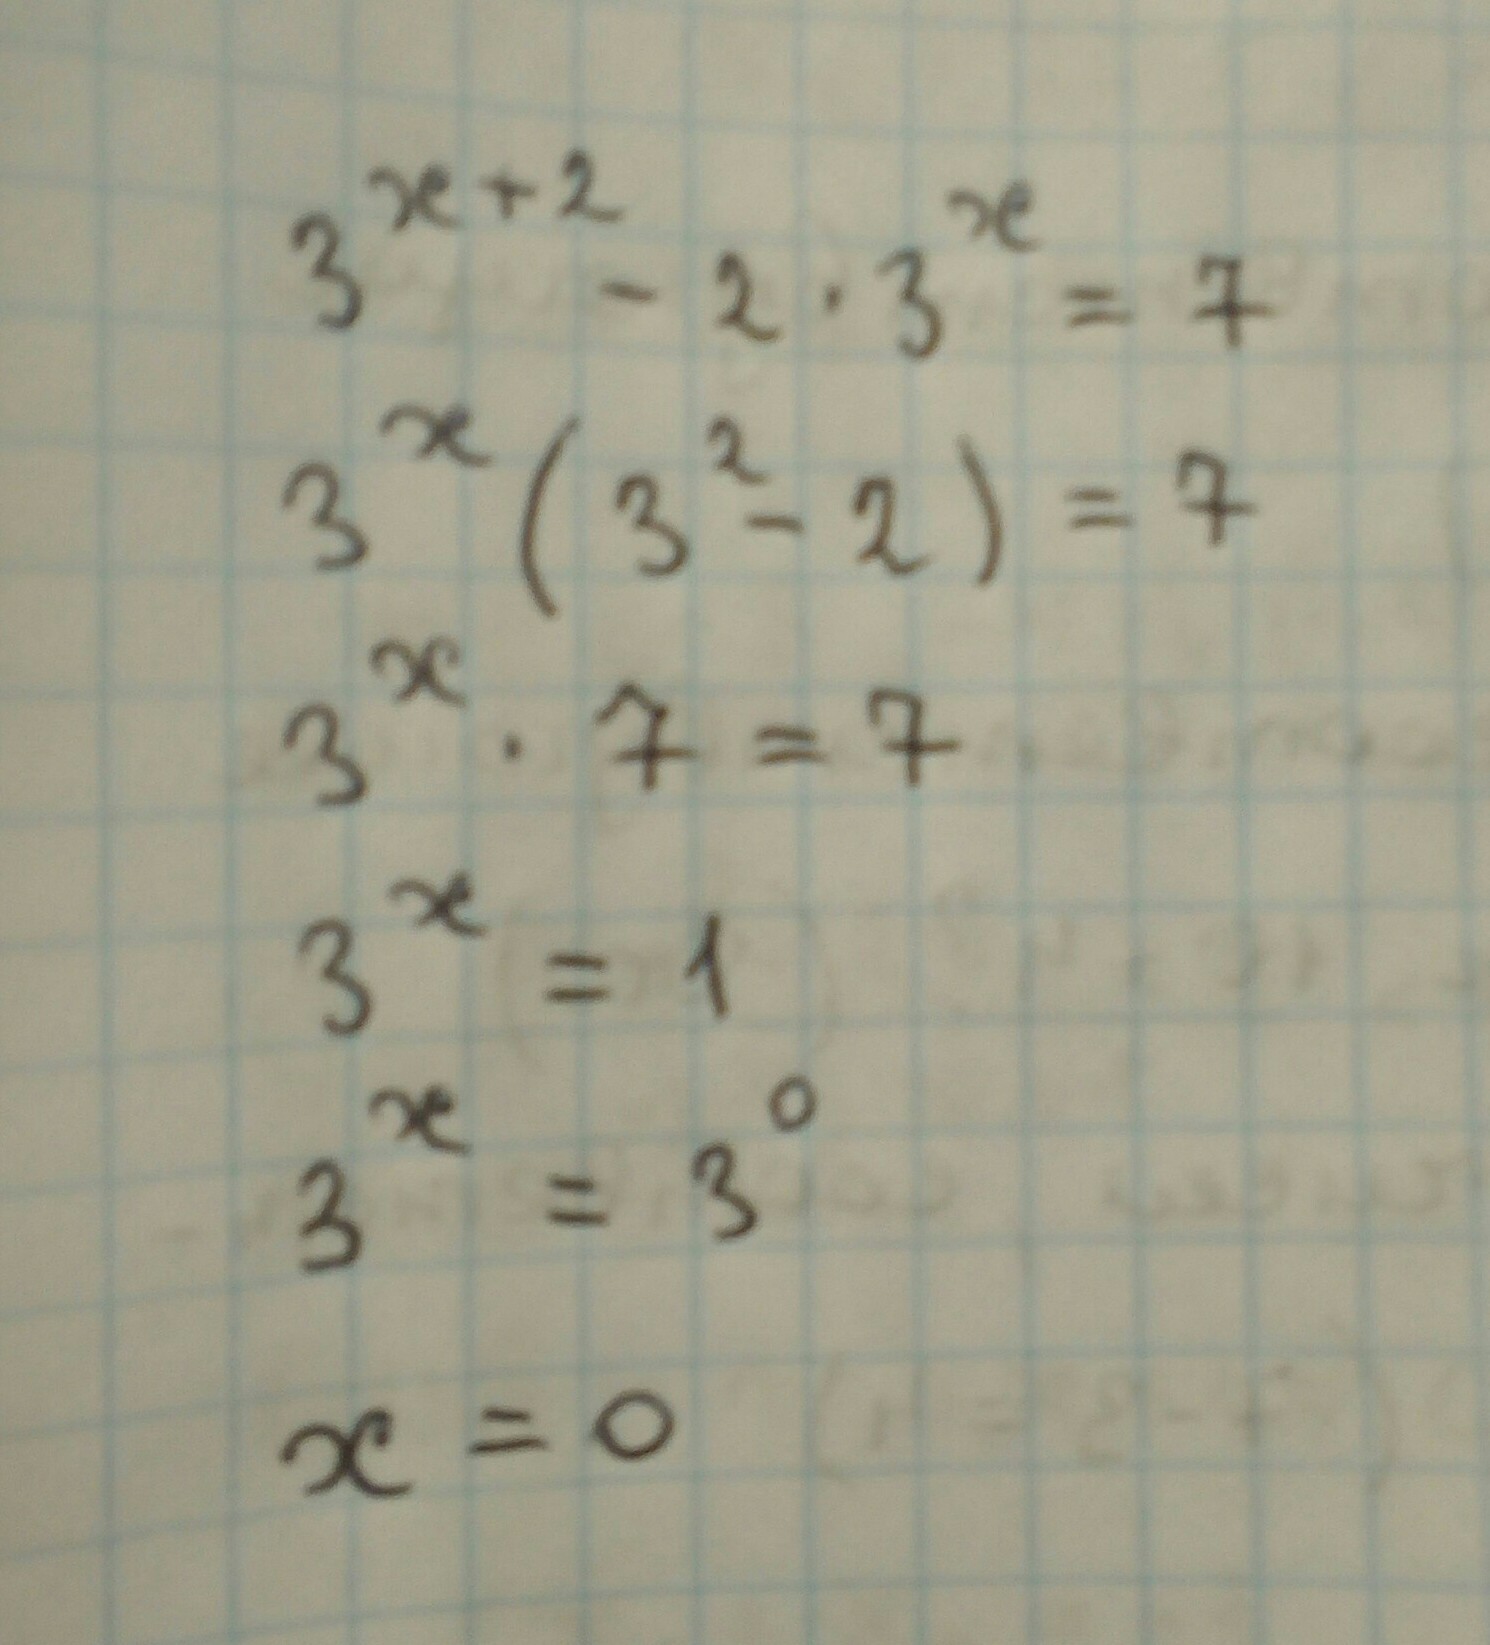 3^{x+2} - 2 · 3^x = 7
3^x (3^2 - 2) = 7
3^x · 7 = 7
3^x = 1
3^x = 3^0
x = 0